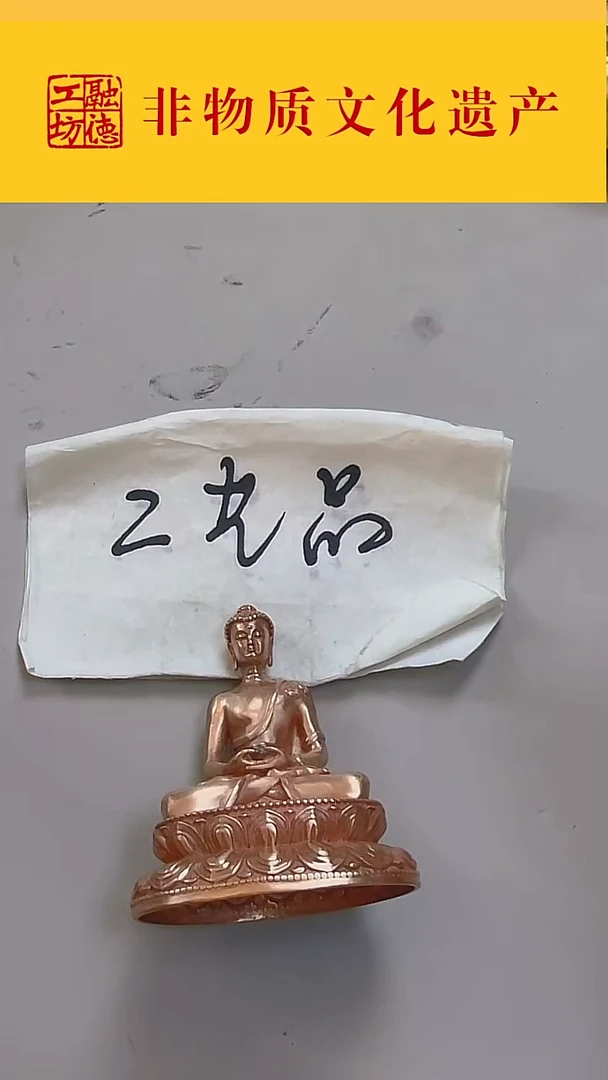 融德工坊
非物质文化遗产
工艺品